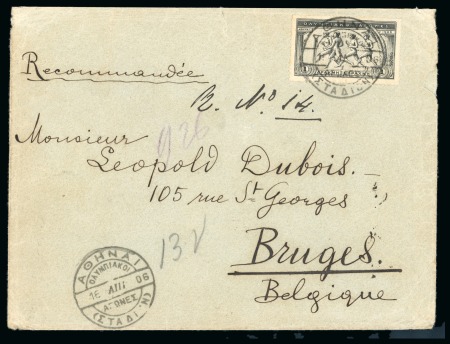 Recommandée
R. Nº 14.
926
Monsieur
Leopold Dubois.
105 rue St Georges
13
Bruges.
Belgique
ΑΘΗΝΑΙ
ΟΛΥΜΠΙΑΚΟΙ
ΑΓΩΝΕΣ
(ΣΤΑΔΙΟΝ)
06
(ΣΤΑΔΙΟΝ)